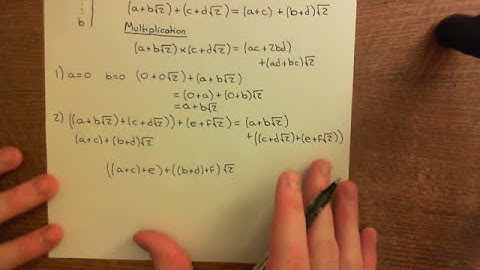 (a+b√2)+(c+d√2)=(a+c)+(b+d)√2
b
Multiplication
(a+b√2)×(c+d√2)=(ac+2bd)
+(ad+bc)√2
1) a=0 b=0 (0+0√2)+(a+b√2)
=(0+a)+(0+b)√2
=a+b√2
2) ((a+b√2)+(c+d√2))+(e+f√2)=(a+b√2)
(a+c)+(b+d)√2 +((c+d√2)+(e+f√2))
((a+c)+e)+((b+d)+f)√2